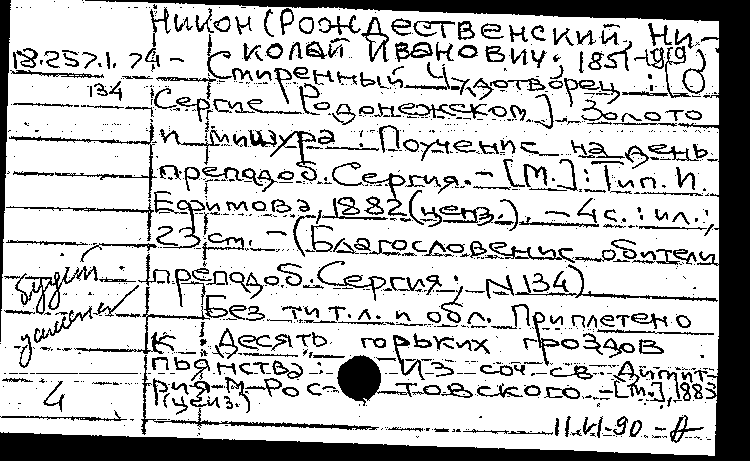 Никон (Рождественский, Ни-
колай Иванович; 1851-1919)
18.257.1.74-
134
Смиренный Чудотворец : [О
Сергие Радонежском]. Золото
и мишура : Поучение на день
преподоб. Сергия. - [М.] : Тип. И.
Ефимова, 1882 (ценз.). - 4 с. : ил.;
23 см. - (Благословение обители
преподоб. Сергия ; N 134).
Без тит. л. и обл. Приплетено
к : Десять горьких гроздов
пьянства : Из соч. св. Димит-
рия М. Рос- товского. - [М.], 1883
(ценз.)
будет
4
11.VI-90 -